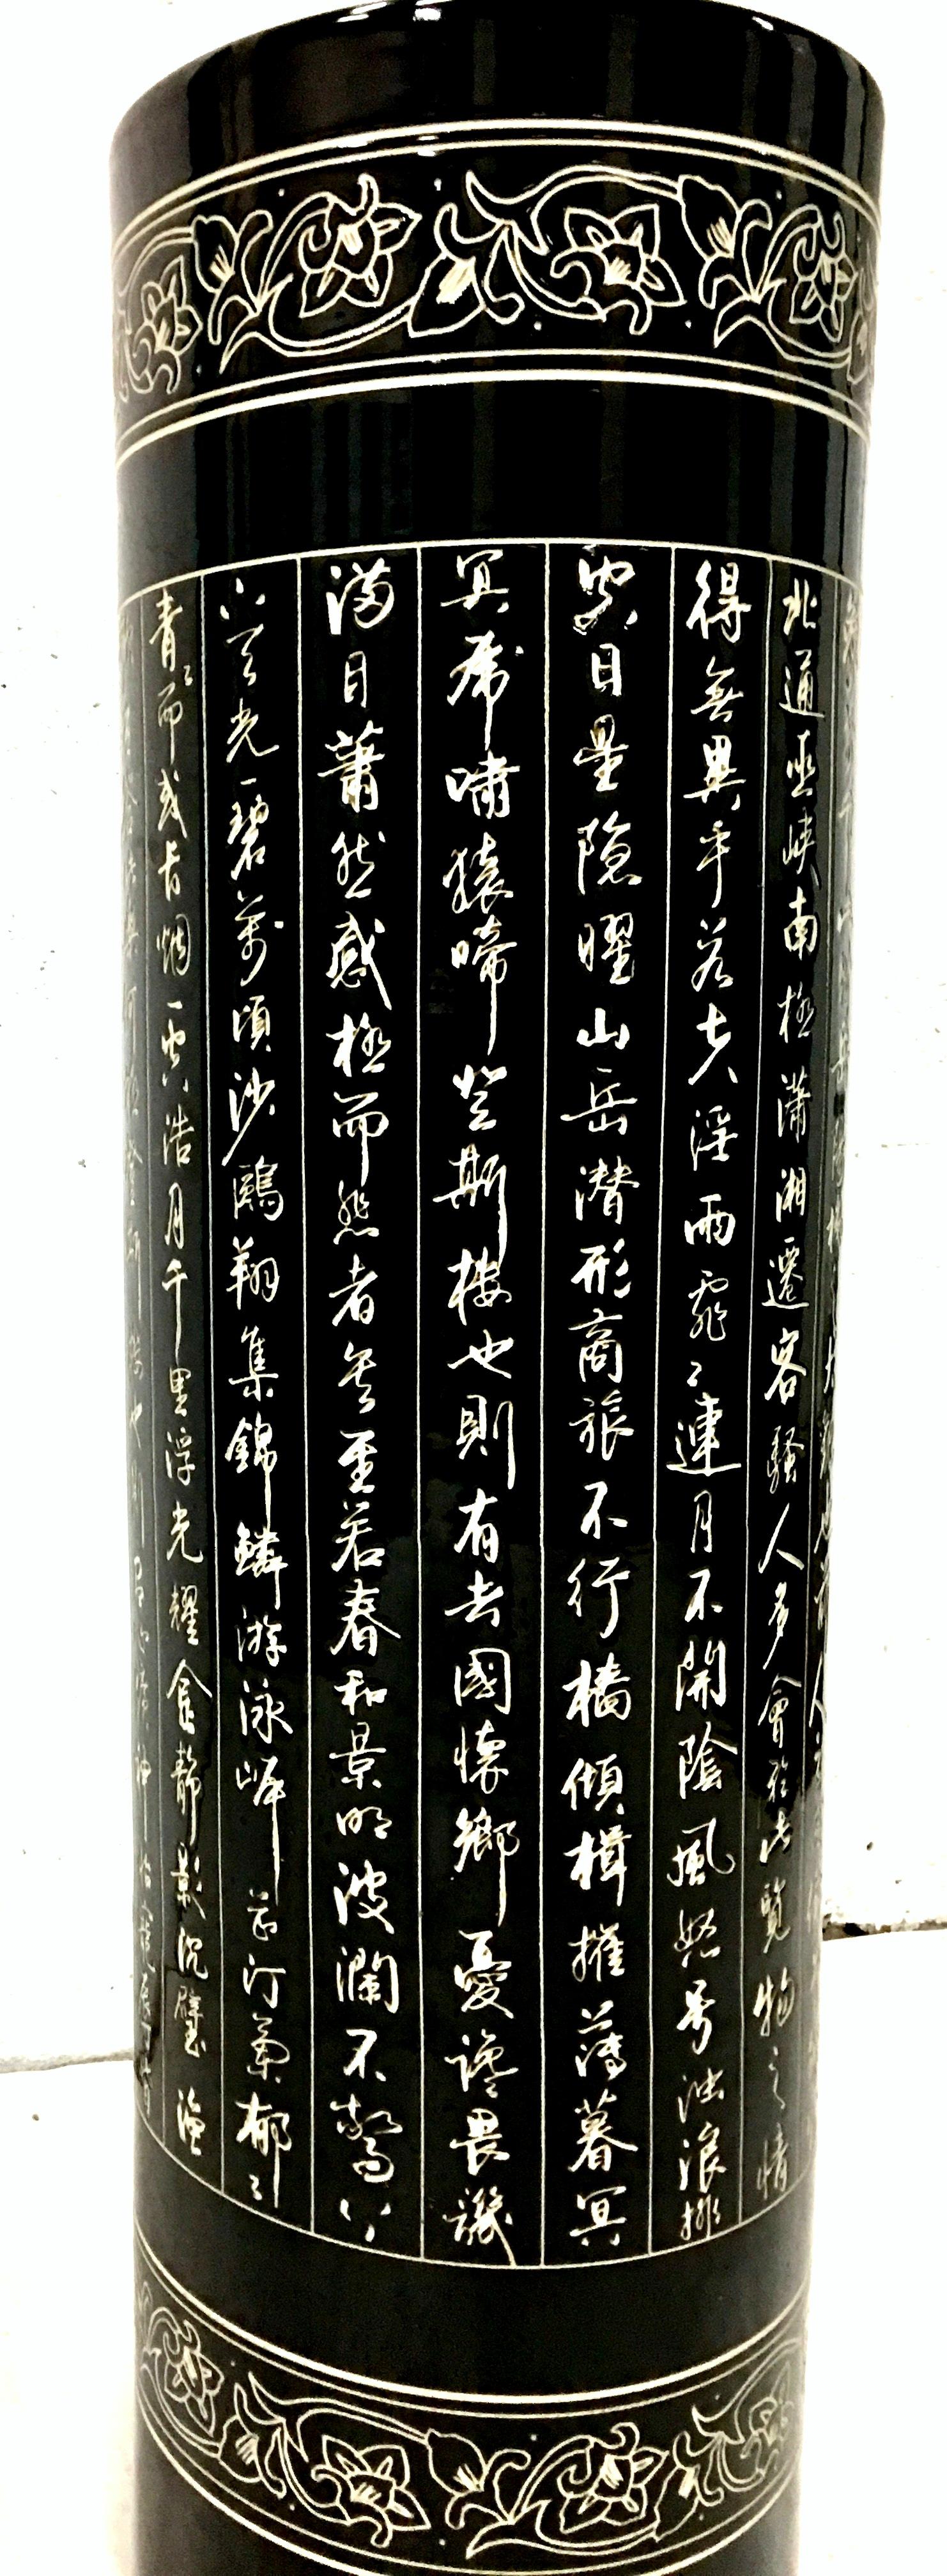 岳陽樓之大觀也前人
北通巫峽南極瀟湘遷客騷人多會於此覽物之情
得無異乎若夫淫雨霏〻連月不開陰風怒号浊浪排
空日星隱曜山岳潛形商旅不行檣傾楫摧薄暮冥
冥虎嘯猿啼登斯樓也則有去國懷鄉憂讒畏譏
滿目蕭然感極而悲者矣至若春和景明波瀾不驚上
下天光一碧萬頃沙鷗翔集錦鱗游泳岸芷汀蘭郁〻
青〻而或長烟一空浩月千里浮光耀金靜影沉璧漁
此樂何極登斯樓也則有心曠神怡